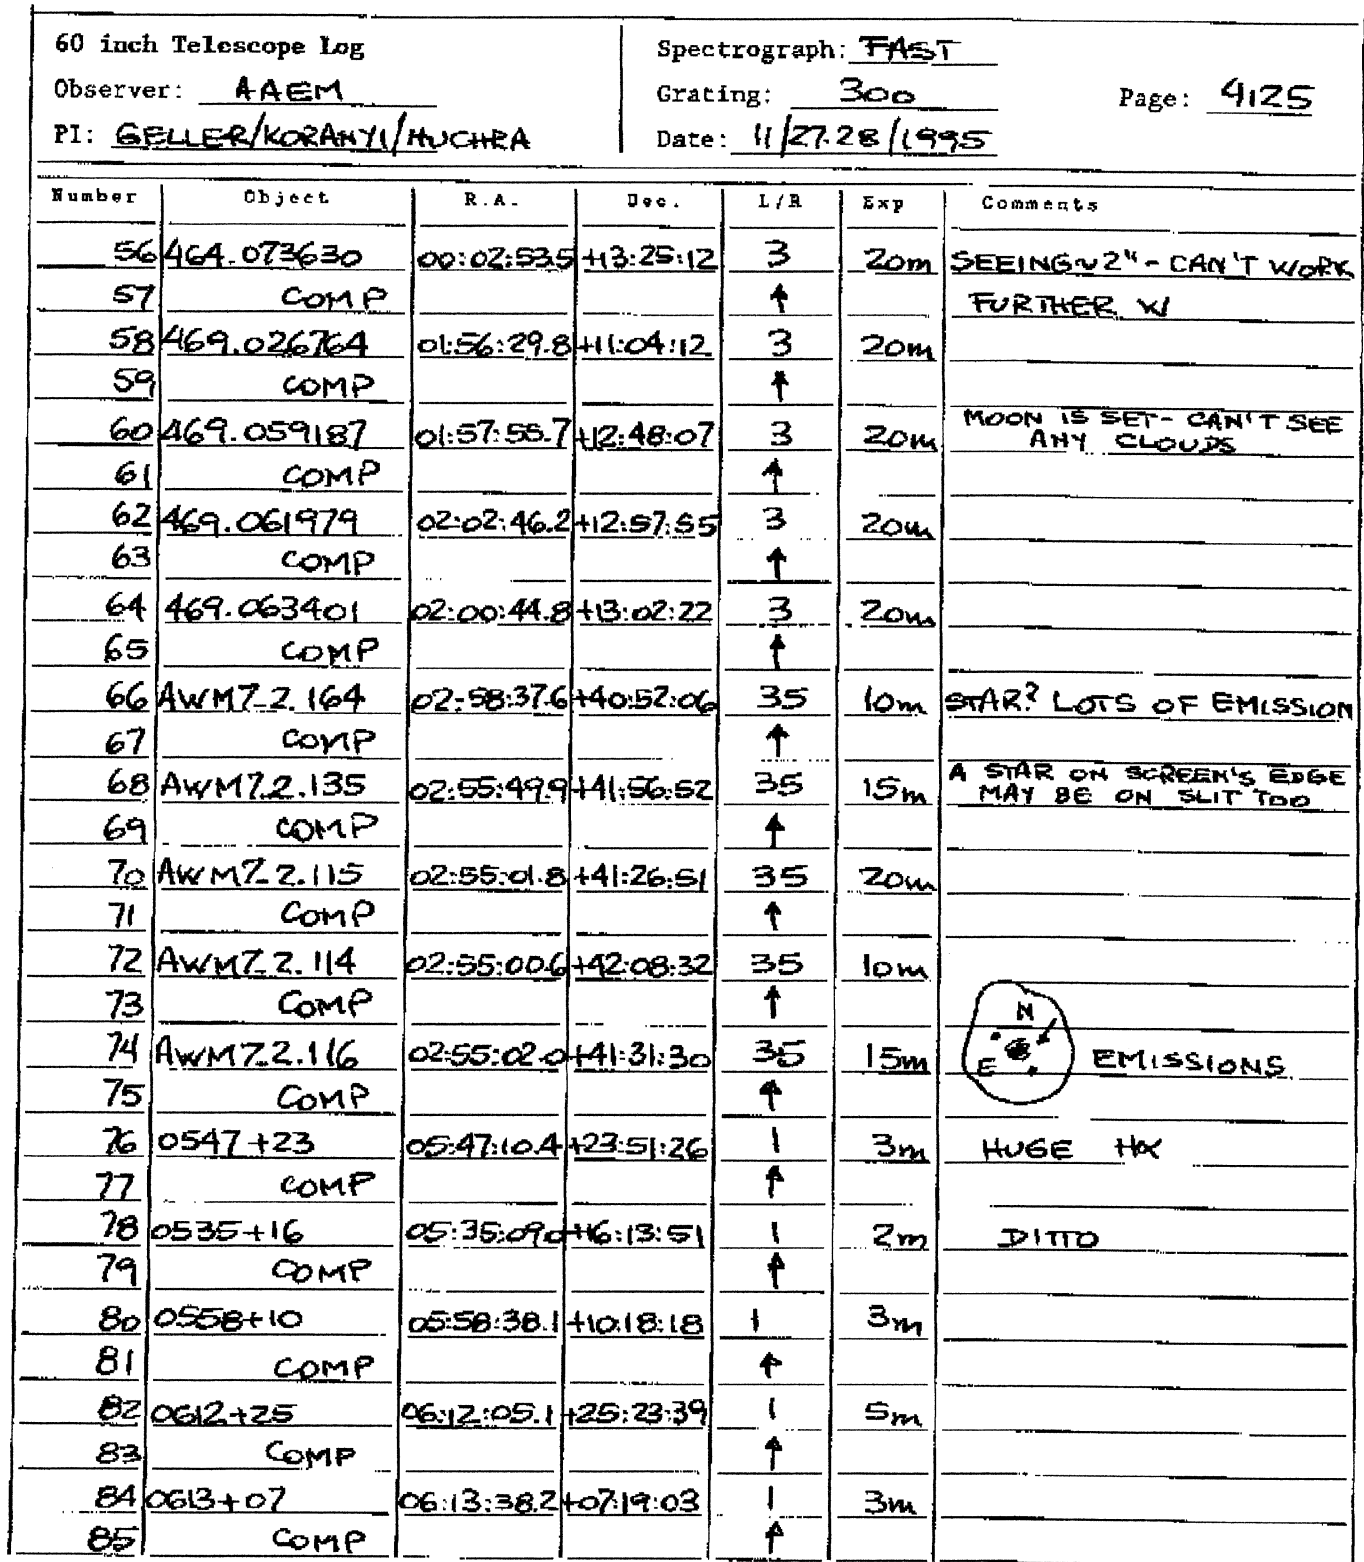 60 inch Telescope Log
Observer: AAEM
PI: GELLER/KORANYI/HUCHRA
Spectrograph: FAST
Grating: 300
Date: 11/27.28/1995
Page: 4125
Number Object R.A. Dec. L/R Exp Comments
56 464.073630 00:02:53.5 +13:25:12 3 20m SEEING~2"- CAN'T WORK
57 COMP ↑ FURTHER W
58 469.026764 01:56:29.8 +11:04:12 3 20m
59 COMP ↑
60 469.059187 01:57:55.7 +12:48:07 3 20m MOON IS SET- CAN'T SEE
ANY CLOUDS
61 COMP ↑
62 469.061979 02:02:46.2 +12:57:55 3 20m
63 COMP ↑
64 469.063401 02:00:44.8 +13:02:22 3 20m
65 COMP ↑
66 AWM7_2.164 02:58:37.6 +40:52:06 35 10m STAR? LOTS OF EMISSION
67 COMP ↑
68 AWM7_2.135 02:55:49.9 +41:56:52 35 15m A STAR ON SCREEN'S EDGE
MAY BE ON SLIT TOO
69 COMP ↑
70 AWM7_2.115 02:55:01.8 +41:26:51 35 20m
71 COMP ↑
72 AWM7_2.114 02:55:00.6 +42:08:32 35 10m
73 COMP ↑ N
74 AWM7_2.116 02:55:02.0 +41:31:30 35 15m E EMISSIONS
75 COMP ↑
76 0547+23 05:47:10.4 +23:51:26 1 3m HUGE Hα
77 COMP ↑
78 0535+16 05:35:09.0 +16:13:51 1 2m DITTO
79 COMP ↑
80 0558+10 05:58:38.1 +10:18:18 1 3m
81 COMP ↑
82 0612+25 06:12:05.1 +25:23:39 1 5m
83 COMP ↑
84 0613+07 06:13:38.2 +07:19:03 1 3m
85 COMP ↑